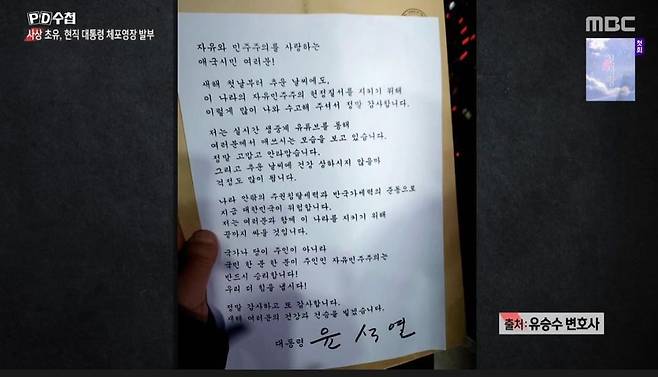 PD수첩
사상 초유, 현직 대통령 체포영장 발부
MBC
첫회
자유와 민주주의를 사랑하는
애국시민 여러분!
새해 첫날부터 추운 날씨에도,
이 나라의 자유민주주의 헌정질서를 지키기 위해
이렇게 많이 나와 수고해 주셔서 정말 감사합니다.
저는 실시간 생중계 유튜브를 통해
여러분께서 애쓰시는 모습을 보고 있습니다.
정말 고맙고 안타깝습니다.
그리고 추운 날씨에 건강 상하시지 않을까
걱정도 많이 됩니다.
나라 안팎의 주권침탈세력과 반국가세력의 준동으로
지금 대한민국이 위험합니다.
저는 여러분과 함께 이 나라를 지키기 위해
끝까지 싸울 것입니다.
국가나 당이 주인이 아니라
국민 한 분 한 분이 주인인 자유민주주의는
반드시 승리합니다!
우리 더 힘을 냅시다!
정말 감사하고 또 감사합니다.
새해 여러분의 건강과 건승을 빌겠습니다.
대통령 윤석열
출처: 유승수 변호사